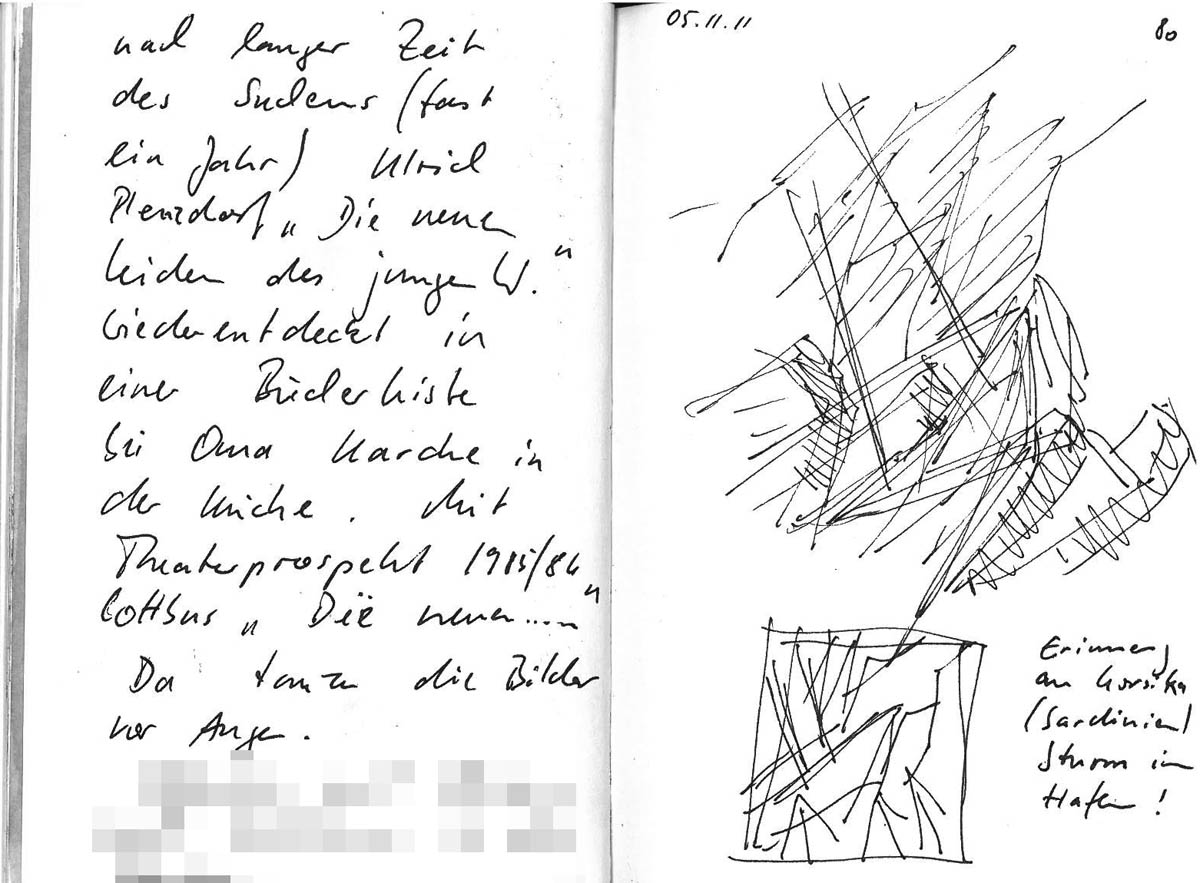 nach langer Zeit
des Suchens (fast
ein Jahr) Ulrich
Plenzdorf „Die neuen
Leiden des jungen W.“
wiederentdeckt in
einer Bücherkiste
bei Oma Karche in
der Küche. Mit
Theaterprospekt 1985/86
Cottbus „Die neuen....“
Da tanzen die Bilder
vor Augen.
05.11.11
80
Erinnerg
an Korsika
(Sardinien)
Sturm im
Hafen!